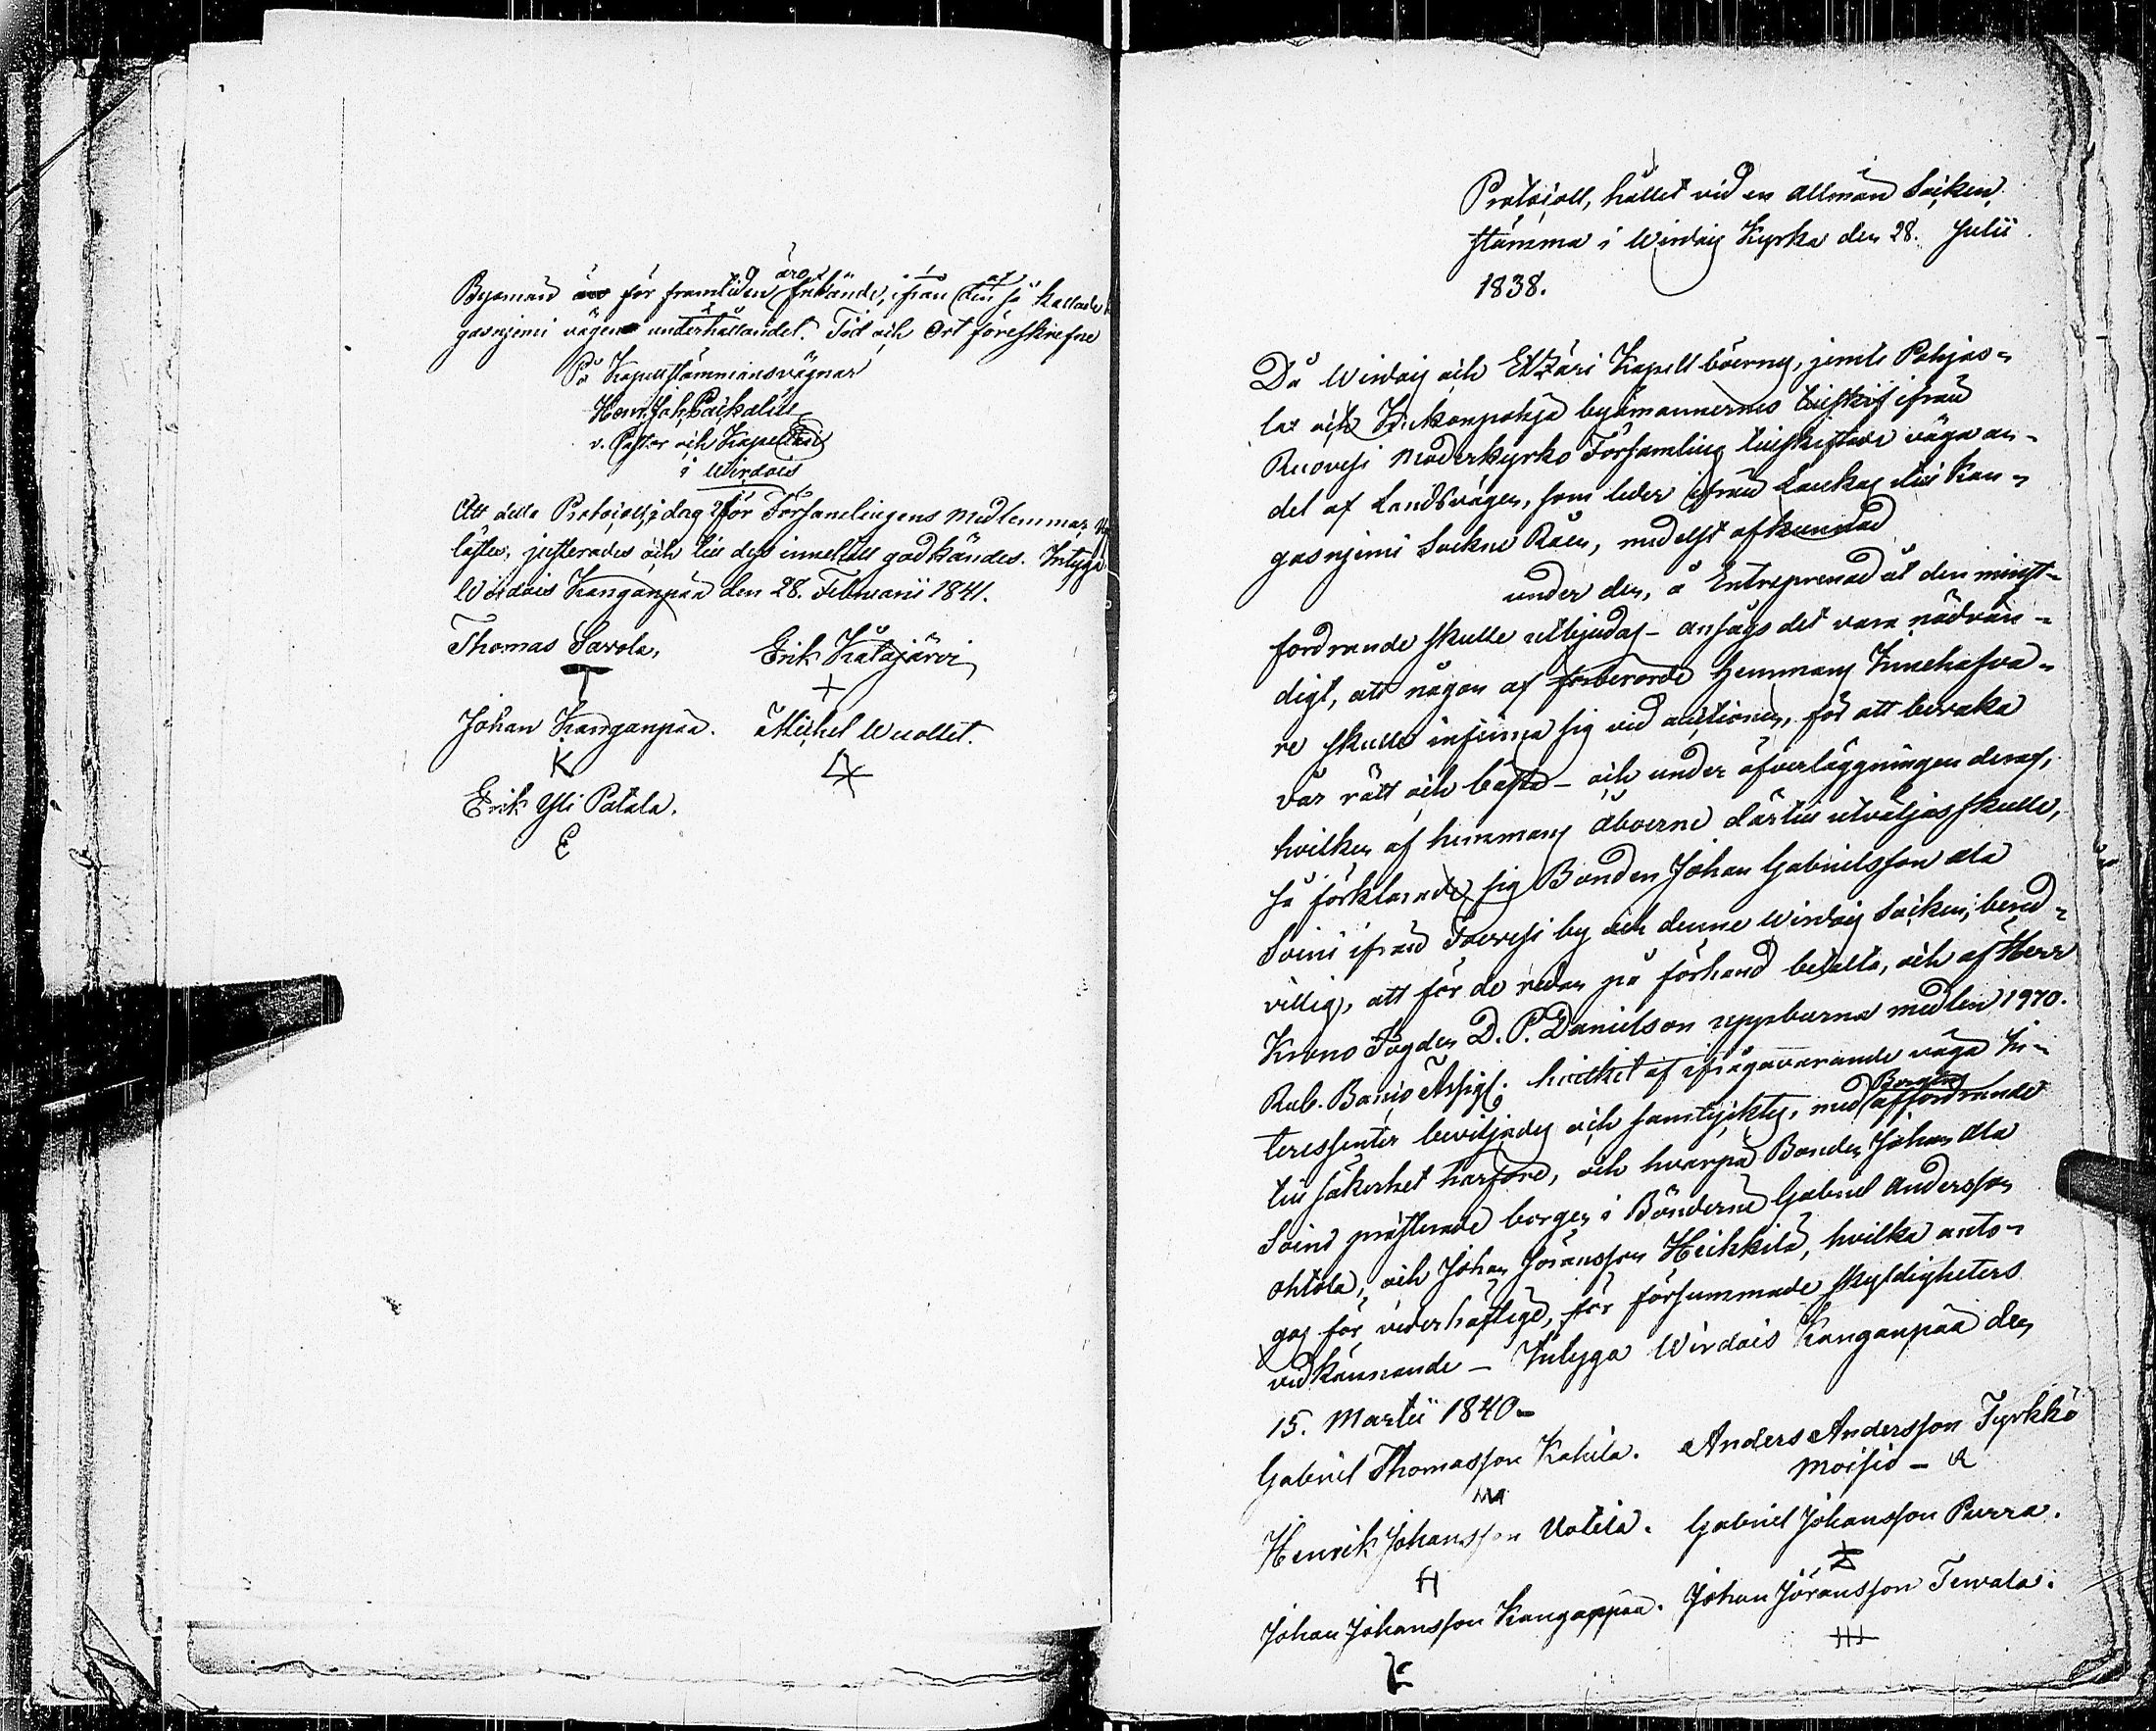 Byamän för framtiden äro frikände, ifrån den så kallade
gasnjemi vägens underhållandet. Tid och Ort föreskrefne
På Kapellstämmansvägnar
Henr. Joh. Packalén
v. Pastor och Kapellan
i Wirdois
Att detta Protocoll i dag för Församlingens Medlemmar upp
lästes, justerades och till dess innehåll godkändes. Intyga
Wirdois Kanganpää den 28. Februarii 1841.
Thomas Savola, Erik Katajärvi
T +
Johan Kanganpää. Michel Wuollet.
K
Erik Yli Patala.
E
Protocoll, hållet vid en allmän Socken
stämma i Wirdois Kyrka den 28. Julii
1838.
Då Wirdois och Etzäri Kapell boerne, jemte Pohjas-
lax och Wickonpohja byamännernes tillskift ifrån
Ruovesi Moderkyrko Församling tillskiftade väga an-
del af Landsvägen, som leder ifrån Laukas till Kan-
gasnjemi Sockne Råen, medelst afkunnad
under den, å Entreprenad åt den minst-
fordrande skulle utbjudas – ansågs det vara nödvän-
digt, att någon af förberörde Hemmans Innehafva-
re skulle infinna sig vid auctionen, för att bevaka
vår rätt och bästa – och under öfverläggningen deraf,
hvilken af hemmans åboerne dertill utväljas skulle,
så förklarade sig Bonden Johan Gabrielsson Ala
Soini ifrån Toivesi by och denne Wirdois Socken, bered-
villig, att för de redan på förhand betalta, och af Herr
Krono Fogden D. P. Danielson uppburna medlen 1970.
Rub. Banco Assign. hvilket af ifrågavarande väga In-
teressenter beviljades och samtycktes, med Borgens affordrande
till säkerhet härföre, och hvarpå Bonden Johan Ala
Soini præsterade borgen i Bönderne Gabriel Andersson
Ohtola, och Johan Jöransson Heikkilä, hvilka anto-
gos för vederhäftige, för försummade skyldigheters
vidkännande – Intyga Wirdois Kanganpää den
15. Martii 1840 –
Gabriel Thomasson Kahila. Anders Andersson Tyrkkö
Moisio – A
Henrik Johansson Uotila. Gabriel Johansson Purra.
H
Johan Johansson Kangaspää. Johan Jöransson Tewala.